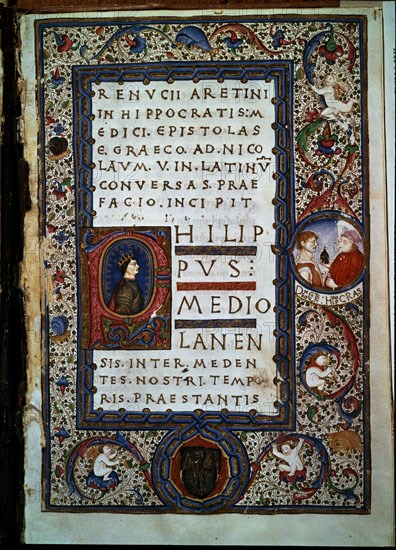 RENVCII ARETINI
IN HIPPOCRATIS: M
EDICI. EPISTOLAS
E. GRAECO. AD. NICO
LAVM. V. IN. LATINV̅
CONVERSAS. PRAE
FACIO. INCIPIT
PHILIP
PVS:
MEDIO
LANEN
SIS. INTER. MEDEN
TES. NOSTRI. TEMPO
RIS. PRAESTANTIS